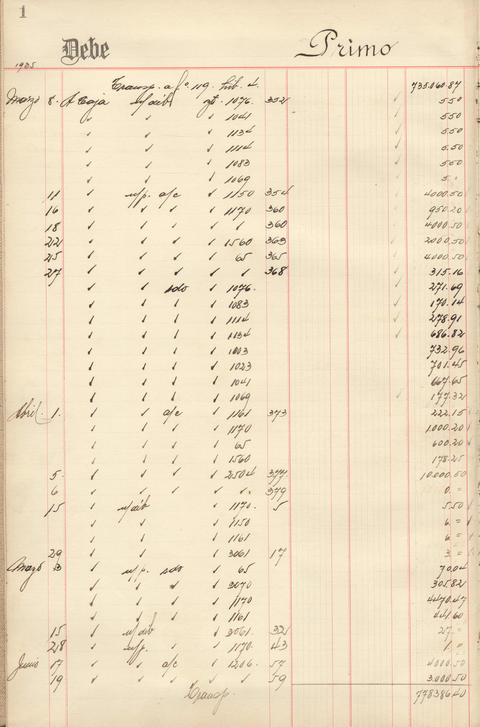 1
Debe Primo
1935
Transp. a fo. 119. Lib. 4. 735.060.87
Marzo 8. A Caja 1076. 352 ✓ 5.50
✓ ✓ ✓ 1041 ✓ 5.50
✓ ✓ ✓ 1134 ✓ 5.50
✓ ✓ ✓ 1114 ✓ 5.50
✓ ✓ ✓ 1083 ✓ 5.50
✓ ✓ ✓ 1069 ✓ 5.
11 ✓ n/p. a/c ✓ 1150 354 ✓ 4000.50
16 ✓ ✓ ✓ ✓ 1170 360 ✓ 950.20
18 ✓ ✓ ✓ ✓ ✓ 360 ✓ 4000.50
22 ✓ ✓ ✓ ✓ 1560 363 ✓ 2000.50
25 ✓ ✓ ✓ ✓ 65 365 ✓ 4000.50
27 ✓ ✓ ✓ ✓ ✓ 368 ✓ 315.16
✓ ✓ sdo ✓ 1076. ✓ 271.69
✓ ✓ ✓ ✓ 1083 ✓ 170.14
✓ ✓ ✓ ✓ 1114 ✓ 278.91
✓ ✓ ✓ ✓ 1134 ✓ 686.82
✓ ✓ ✓ ✓ 1003 732.96
✓ ✓ ✓ ✓ 1023 701.45
✓ ✓ ✓ ✓ 1041 667.65
✓ ✓ ✓ ✓ 1069 ✓ 177.32
Abril 1. ✓ ✓ a/c ✓ 1161 373 222.15
✓ ✓ ✓ ✓ 1170 1000.20
✓ ✓ ✓ ✓ 65 600.20
✓ ✓ ✓ ✓ 1560 178.25
5. ✓ ✓ ✓ ✓ 2504 377 10.000.50
6 ✓ ✓ ✓ ✓ ✓ 379 0.=
15 ✓ ✓ 1170. 5 5.50
✓ ✓ ✓ 1150 6.=
✓ ✓ ✓ 1161 6.=
29 ✓ ✓ ✓ 3061 17 3.=
Mayo 3 ✓ n/p. sdo ✓ 65 70.04
✓ ✓ ✓ ✓ 3070 305.82
✓ ✓ ✓ ✓ 1170 4470.47
✓ ✓ ✓ ✓ 1161 441.60
15 ✓ ✓ 3061. 32 27.=
28 ✓ n/p. ✓ 1170. 43 1.=
Junio 17 ✓ ✓ a/c ✓ 1206. 57 4000.50
19 ✓ ✓ ✓ ✓ ✓ 59 3.000.50
Transp. 778386.40